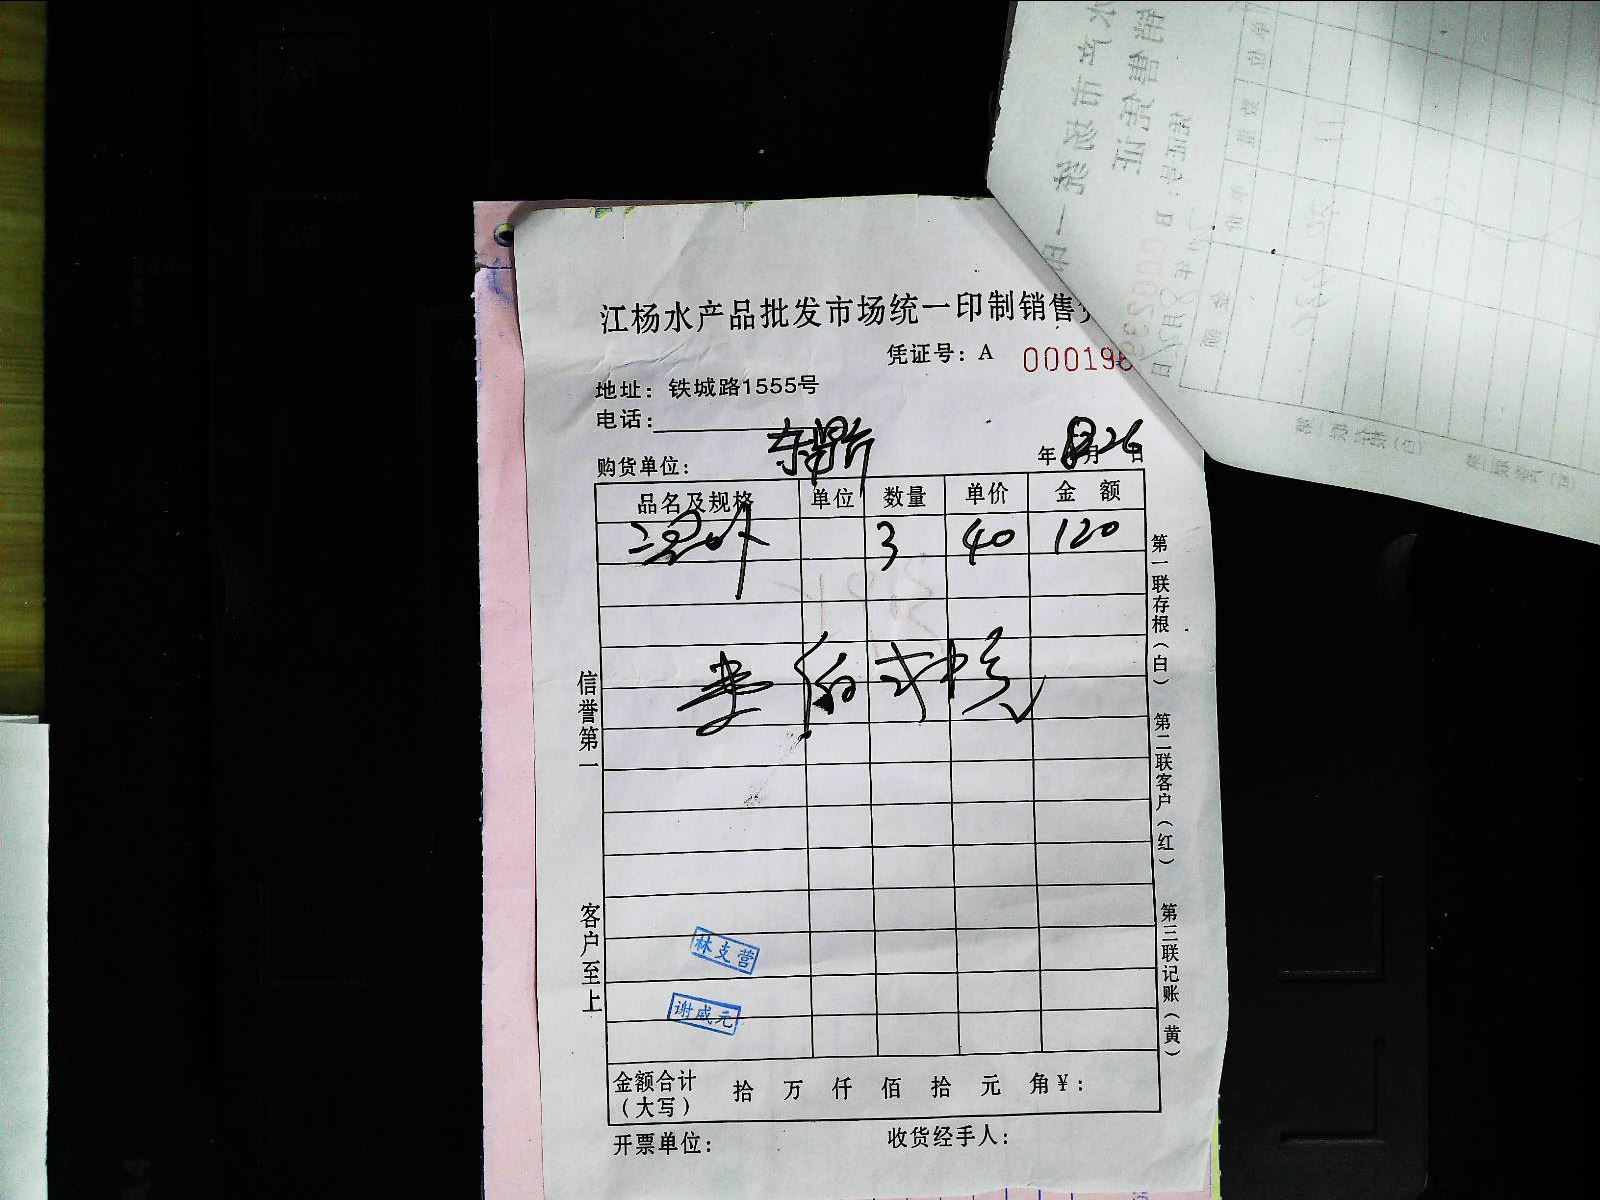 江杨水产品批发市场统一印制销售
凭证号：A 000196
地址：铁城路1555号
电话：
购货单位： 年8月26日
品名及规格 单位 数量 单价 金额
3 40 120
信誉第一
客户至上
第一联存根（白）
第二联客户（红）
第三联记账（黄）
林支营
谢威元
金额合计（大写） 拾 万 仟 佰 拾 元 角 ¥：
开票单位： 收货经手人：